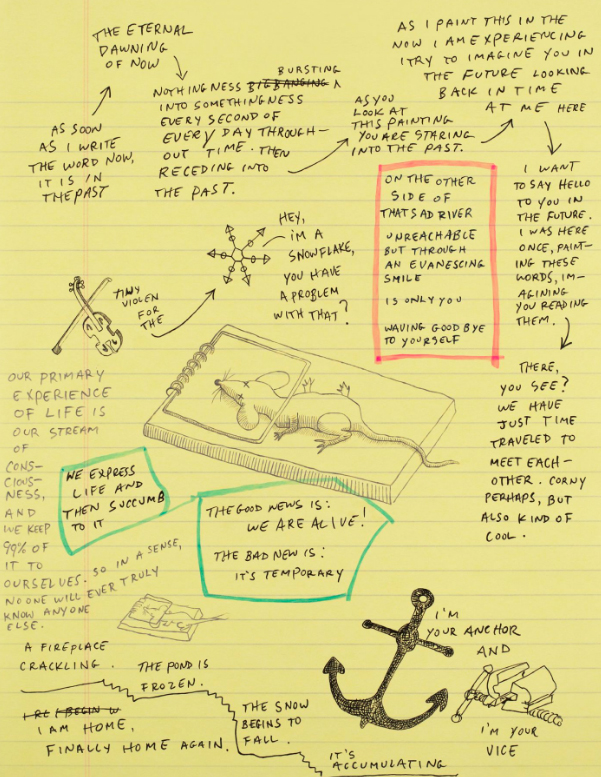 AS SOON
AS I WRITE
THE WORD NOW,
IT IS IN
THE PAST
THE ETERNAL
DAWNING
OF NOW
BURSTING
NOTHINGNESS BIG BANGING ^
INTO SOMETHINGNESS
EVERY SECOND OF
EVERY DAY THROUGH-
OUT TIME. THEN
RECEDING INTO
THE PAST.
AS YOU
LOOK AT
THIS PAINTING
YOU ARE STARING
INTO THE PAST.
AS I PAINT THIS IN THE
NOW I AM EXPERIENCING
I TRY TO IMAGINE YOU IN
THE FUTURE LOOKING
BACK IN TIME
AT ME HERE
I WANT
TO SAY HELLO
TO YOU IN
THE FUTURE.
I WAS HERE
ONCE, PAINT-
ING THESE
WORDS, IM-
AGINING
YOU READING
THEM.
THERE,
YOU SEE?
WE HAVE
JUST TIME
TRAVELED TO
MEET EACH-
OTHER. CORNY
PERHAPS, BUT
ALSO KIND OF
COOL.
ON THE OTHER
SIDE OF
THAT SAD RIVER
UNREACHABLE
BUT THROUGH
AN EVANESCING
SMILE
IS ONLY YOU
WAVING GOOD BYE
TO YOURSELF
TINY
VIOLEN
FOR
THE
HEY,
I'M A
SNOWFLAKE,
YOU HAVE
A PROBLEM
WITH THAT?
OUR PRIMARY
EXPERIENCE
OF LIFE IS
OUR STREAM
OF
CONS-
CIOUS-
NESS,
AND
WE KEEP
99% OF
IT TO
OURSELVES. SO IN A SENSE,
NO ONE WILL EVER TRULY
KNOW ANYONE
ELSE.
WE EXPRESS
LIFE AND
THEN SUCCUMB
TO IT
THE GOOD NEWS IS:
WE ARE ALIVE!
THE BAD NEW IS:
IT'S TEMPORARY
A FIREPLACE
CRACKLING.
THE POND IS
FROZEN.
I BEGIN
I AM HOME,
FINALLY HOME AGAIN.
THE SNOW
BEGINS TO
FALL.
IT'S
ACCUMULATING
I'M
YOUR ANCHOR
AND
I'M YOUR
VICE